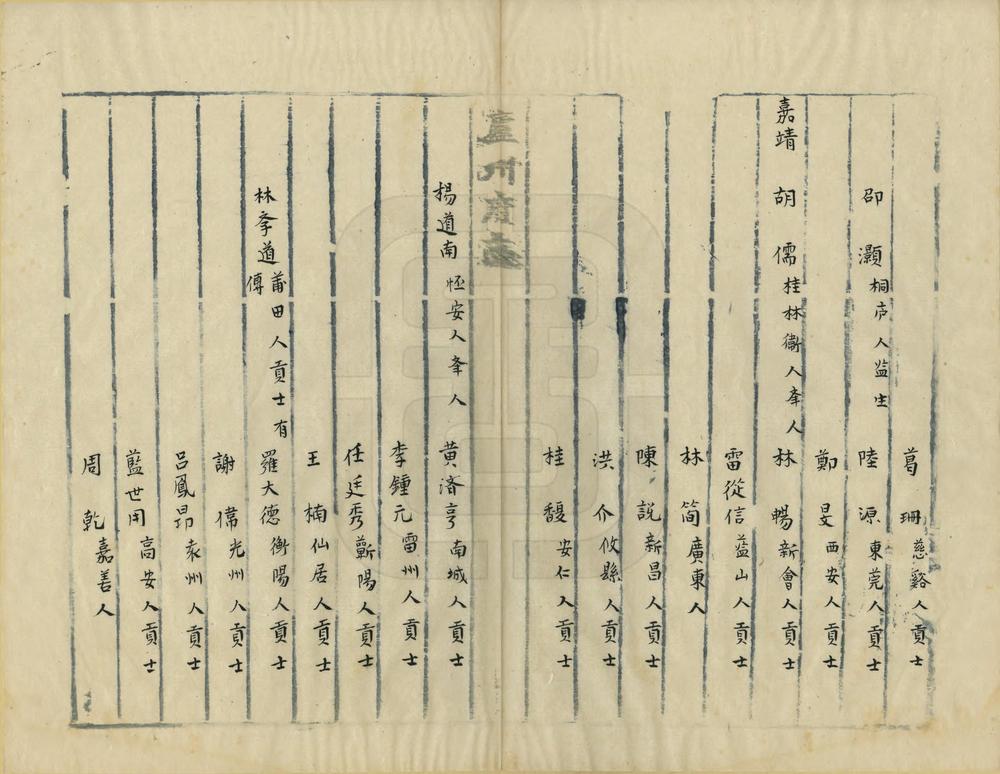 葛 珊慈谿人貢士
邵 灝桐庐人监生
陸 源東莞人貢士
鄭 旻西安人貢士
嘉靖 胡 儒桂林衞人夆人
林 暢新會人貢士
雷從信益山人貢士
林 简廣東人
陳 説新昌人貢士
洪 介攸縣人貢士
桂 馥安仁人貢士
盧州府志
楊道南 怌安人夆人
黄済亨南城人貢士
李鍾元雷州人貢士
任廷秀蘄陽人貢士
王 楠仙居人貢士
林夆道莆田人貢士有傳
羅大德衡陽人貢士
謝 偉光州人貢士
吕鳳昂袁州人貢士
藍世用高安人貢士
周 乾嘉善人